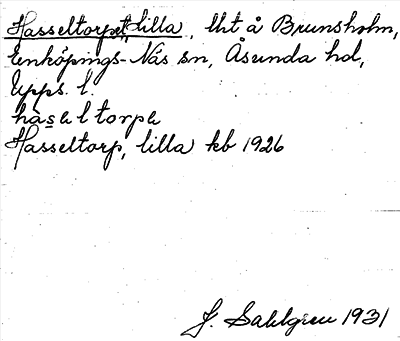 Hasseltorpet, Lilla, lht å Brunsholm,
Enköpings-Näs sn, Åsunda hd,
Upps. l.
hàsеltorpe
Hasseltorp, lilla kb 1926
J. Sahlgren 1931